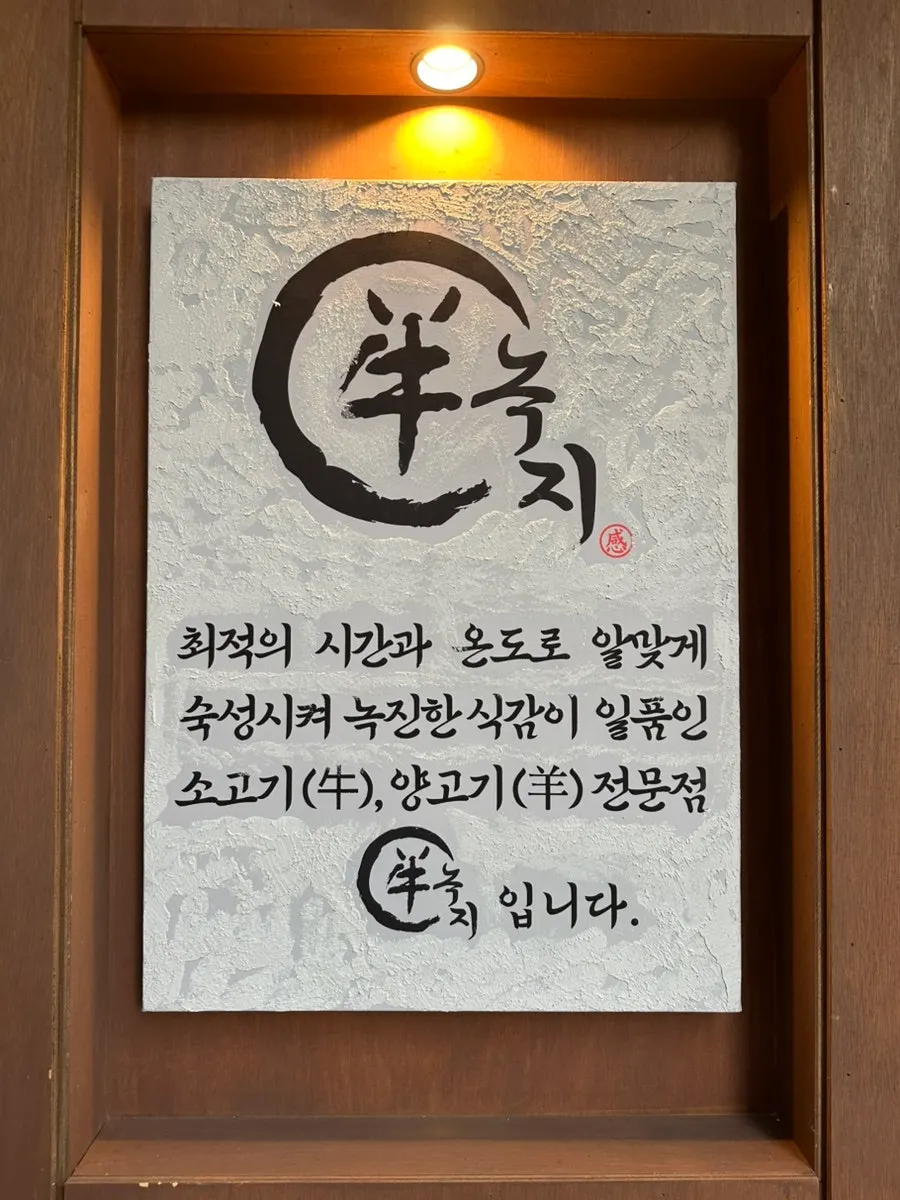 羊녹지
感
최적의 시간과 온도로 알맞게
숙성시켜 녹진한 식감이 일품인
소고기(牛), 양고기(羊) 전문점
羊녹지 입니다.